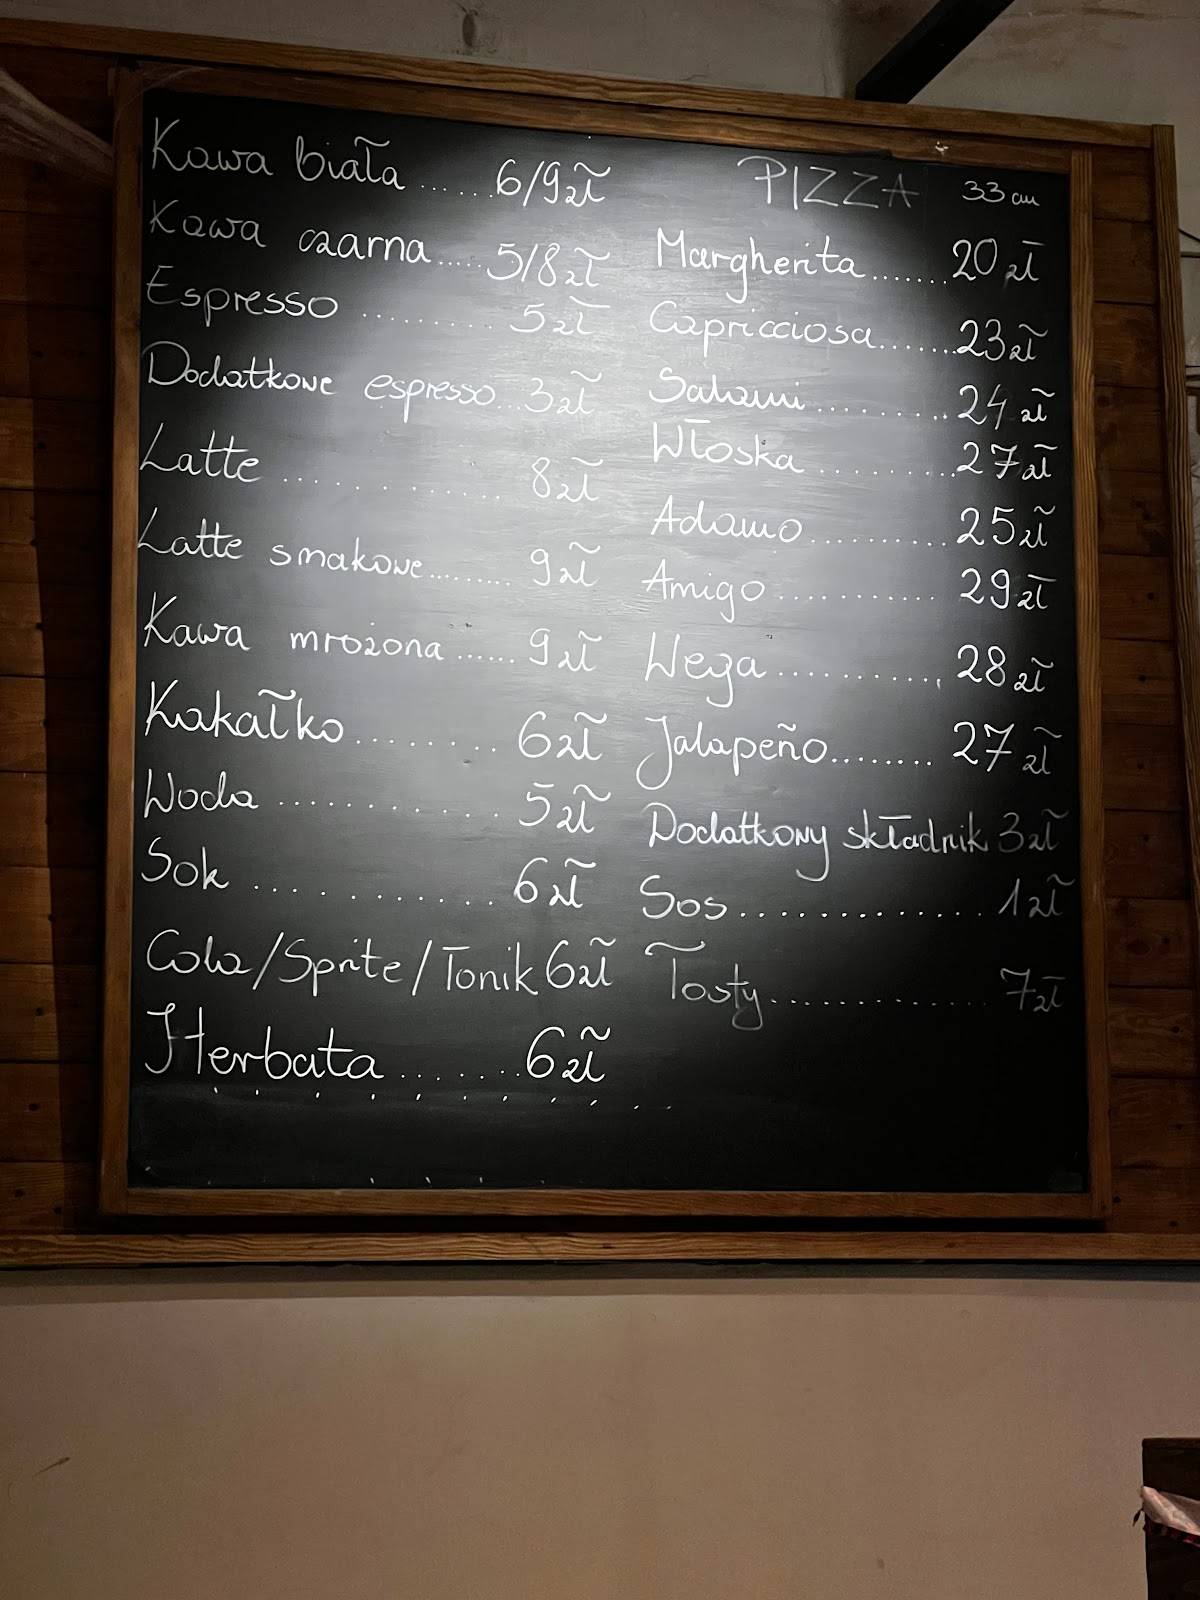 Kawa biała ...... 6/9zł
Kawa czarna ..... 5/8zł
Espresso ......... 5zł
Dodatkowe espresso...3zł
Latte ............. 8zł
Latte smakowe......... 9zł
Kawa mrożona ...... 9zł
Kakałko........ 6zł
Woda .......... 5zł
Sok ........... 6zł
Cola/Sprite/Tonik 6zł
Herbata ....... 6zł
PIZZA 33 cm
Margherita ....... 20 zł
Capricciosa....... 23zł
Salami ......... 24 zł
Włoska ......... 27zł
Adamo .......... 25zł
Amigo ........... 29zł
Wega ........... 28zł
Jalapeño........ 27 zł
Dodatkowy składnik 3zł
Sos .............. 1zł
Tosty.............. 7zł